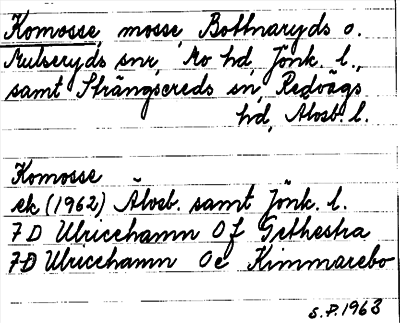 Komosse mosse, Bottnaryds o.
Mulseryds snr, Mo hd, Jönk. l.,
samt Strängsereds sn, Redvägs
hd, Älvsb. l.
Komosse
ek (1962) Älvsb. samt Jönk. l.
7 D Ulricehamn 0 f Gethestra
7 D Ulricehamn 0e Kimmarebo
S.P. 1963